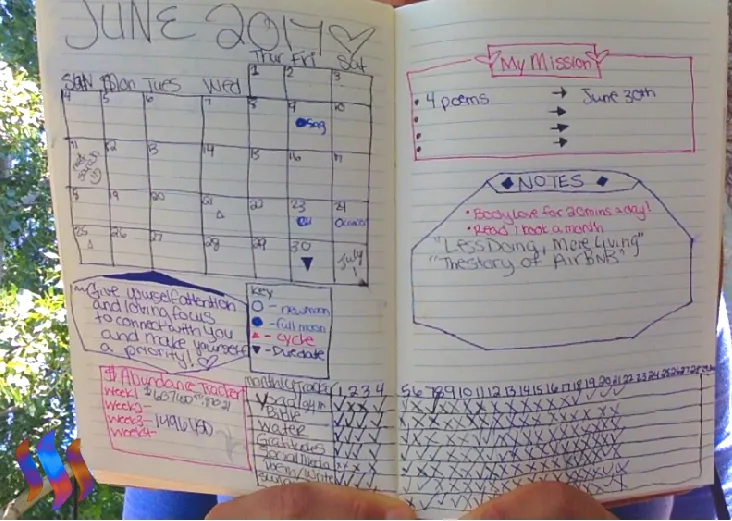 JUNE 2017
Thur Fri Sat
Sun Mon Tues Wed
1 2 3
4 5 6 7 8 9 10
Sag
11 12 13 14 15 16 17
18 19 20 21 22 23 24
Cancer
25 26 27 28 29 30 July 1
Give yourself attention
and loving focus
to connect with you
and make yourself
a priority!
Key
- new moon
- full moon
- cycle
- Due date
$ Abundance Tracker
Week1
Week2-
Week3-
Week4-
Monthly Tracker 1 2 3 4
Bible
Water
Gratitudes
Social Media
My Mission
4 poems → June 30th
NOTES
• Body love for 20mins a day!
• Read 1 book a month
"Less Doing, More Living"
"The story of AirBNB"
5 6 7 8 9 10 11 12 13 14 15 16 17 18 19 20 21 22 23 24 25 26 27 28